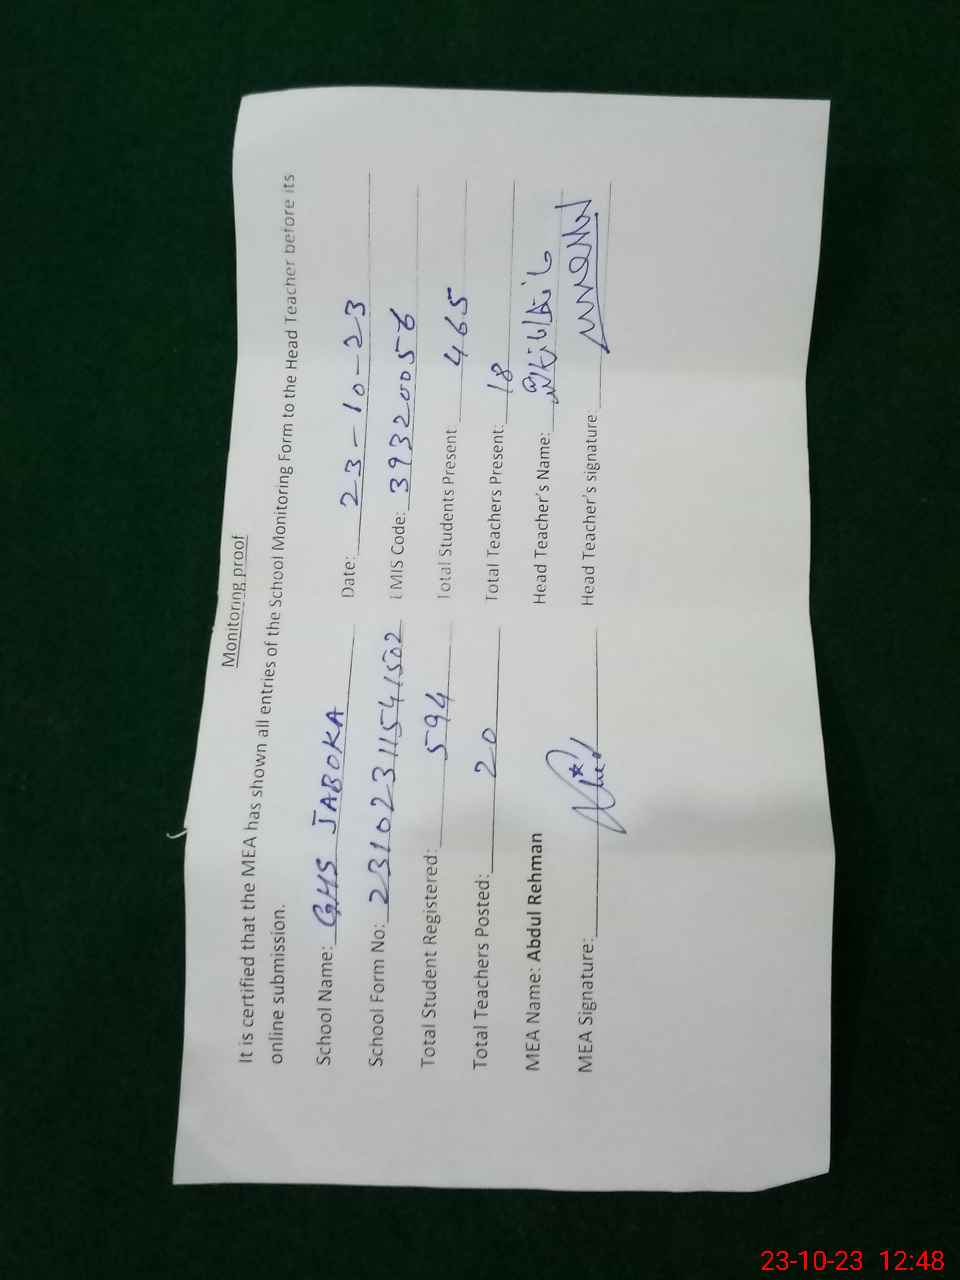 Monitoring proof
It is certified that the MEA has shown all entries of the School Monitoring Form to the Head Teacher before its
online submission.
School Name: GHS JABOKA Date: 23-10-23
School Form No: 23102311541502 EMIS Code: 39320056
Total Student Registered: 594 Total Students Present 465
Total Teachers Posted: 20 Total Teachers Present: 18
MEA Name: Abdul Rehman Head Teacher's Name:
MEA Signature: Head Teacher's signature:
23-10-23 12:48